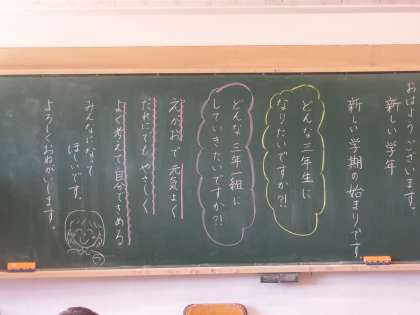 おはようございます。
新しい学年
新しい学期の始まりです
どんな三年生に
なりたいですか?!
どんな三年一組に
していきたいですか?!
えがおで元気よく
だれにでもやさしく
よく考えて自分できめる
みんなになって
ほしいです。
よろしくおねがいします。